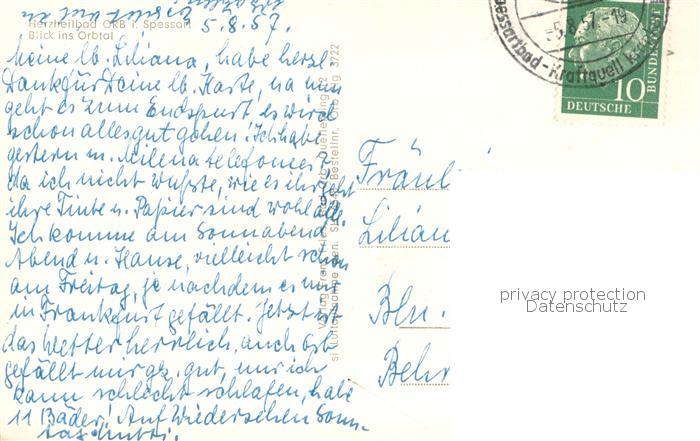 Herzheilbad ORB i. Spessart
Blick ins Orbtal
5.8.57.
Meine lb. Liliana, habe herzl.
Dank für Deine lb. Karte, na nun
geht es zum Endspurt, es wird
schon alles gut gehen! Ich habe
gestern m. Milena telefoniert
da ich nicht wußte, wie es ihr geht
ihre Tinte u. Papier sind wohl alle.
Ich komme am Sonnabend
Abend n. Hause, vielleicht schon
am Freitag, je nachdem es mir
in Frankfurt gefällt. Jetzt ist
das Wetter herrlich, auch Orb
gefällt mir gz. gut, nur ich
kann schlecht schlafen, habe
11 Bäder! Auf Wiedersehen Sonn-
Fräul
Lilian
Bln.
Behr
Bestellnr. Orb 3722
5.8.57.-19
Spessartbad - Kraftquell
10
DEUTSCHE
BUNDESPOST
privacy protection
Datenschutz